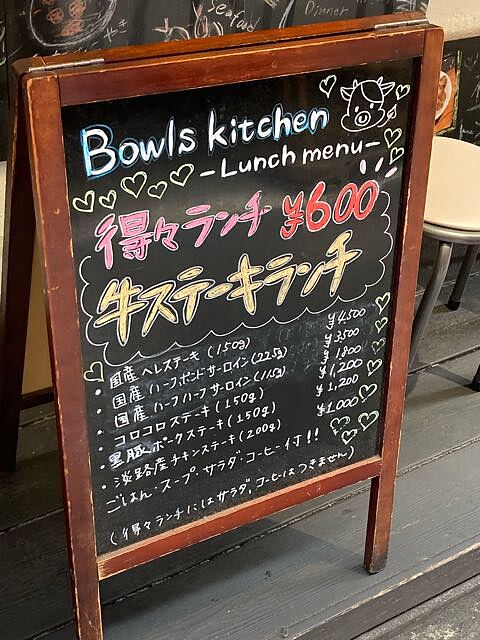 Seafood
Dinner
Bowls kitchen
-Lunch menu-
得々ランチ ¥600
牛ステーキランチ
・国産ヘレステーキ(150g) ¥4,500
・国産ハーフポンドサーロイン(225g) ¥3,500
・国産ハーフハーフサーロイン(115g) ¥1,800
・コロコロステーキ(150g) ¥1,200
・黒豚ポークステーキ(150g) ¥1,200
・淡路産チキンステーキ(200g) ¥1,000
ごはん・スープ・サラダ・コーヒー付!!
(得々ランチにはサラダ、コーヒーはつきません)